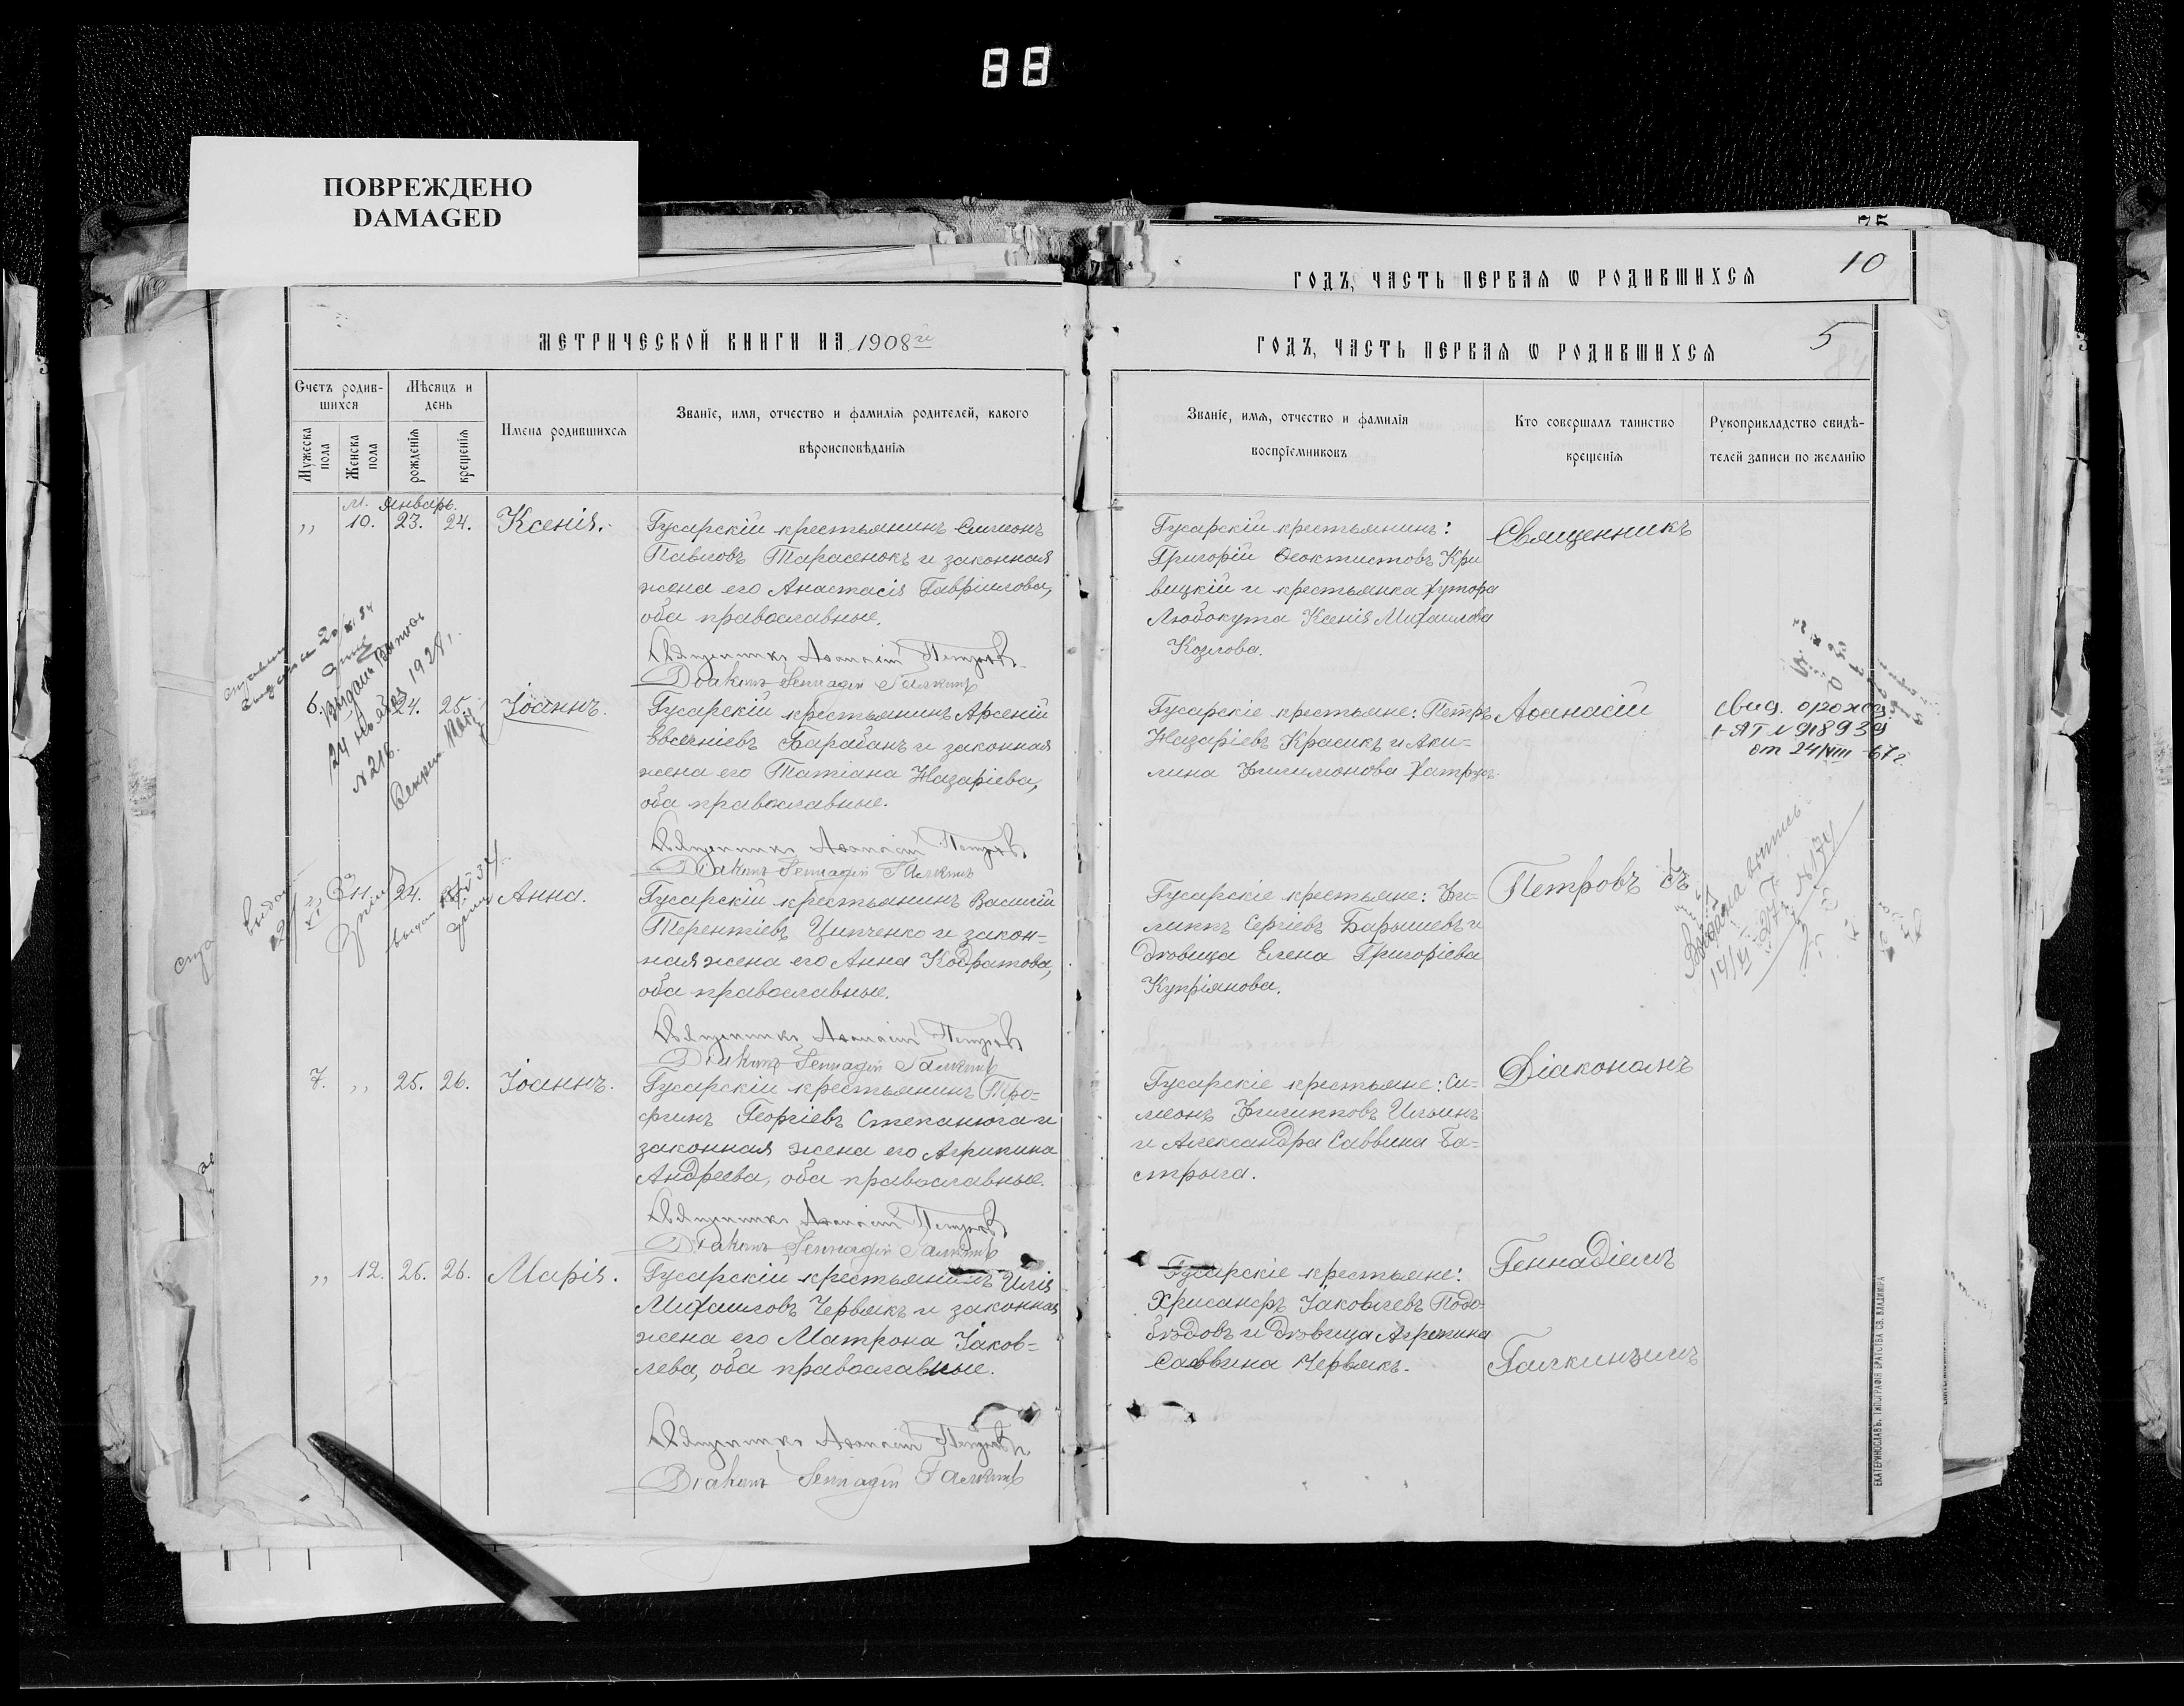 88
ПОВРЕЖДЕНО
DAMAGED
75
ГОДЪ, ЧАСТЬ ПЕРВАЯ Ѡ РОДИВШИХСЯ
10
МЕТРИЧЕСКОЙ КНИГИ НА 1908й
ГОДЪ, ЧАСТЬ ПЕРВАЯ Ѡ РОДИВШИХСЯ
5
Счетъ родив-
шихся
Мѣсяцъ и
день
Мужеска
пола
Женска
пола
рожденія
крещенія
Имена родившихся
Званіе, имя, отчество и фамилія родителей, какого
вѣроисповѣданія
Званіе, имя, отчество и фамилія
воспріемниковъ
Кто совершалъ таинство
крещенія
Рукоприкладство свидѣ-
телей записи по желанію
М. Январь.
„ 10. 23. 24. Ксенія.
Гусарскій крестьянинъ Симеонъ
Павловъ Тарасенокъ и законная
жена его Анастасія Гавріилова,
оба православные.
Священникъ Аѳанасій Петровъ
Діаконъ Геннадій Галкинъ
Гусарскій крестьянинъ:
Григорій Ѳеоктистовъ Кри
вицкій и крестьянка хутора
Любокута Ксенія Михаилова
Козлова.
Священникъ
24 ноября 1928 г.
№ 216.
6. 24. 25. Іоаннъ.
Гусарскій крестьянинъ Арсеній
Евсеніевъ Барабанъ и законная
жена его Татіана Назаріева,
оба православные.
Священникъ Аѳанасій Петровъ
Діаконъ Геннадій Галкинъ
Гусарскіе крестьяне: Петръ
Назаріевъ Красикъ и Аки-
лина Филимонова
Аѳанасій
Свид. о рожд
I-ЯТ № 918939
от 24/VIII-67 г.
„ 11. 24. Анна.
Гусарскій крестьянинъ Василій
Терентіевъ Ципченко и закон-
ная жена его Анна Кодратова,
оба православные.
Священникъ Аѳанасій Петровъ
Діаконъ Геннадій Галкинъ
Гусарскіе крестьяне: Фи-
липпъ Сергіевъ Барышевъ и
дѣвица Елена Григоріева
Купріянова.
Петровъ съ
Выдана выпись
7. „ 25. 26. Іоаннъ.
Гусарскій крестьянинъ Тро-
фимъ Георгіевъ Степанюга и
законная жена его Агрипина
Андреева, оба православные.
Священникъ Аѳанасій Петровъ
Діаконъ Геннадій Галкинъ
Гусарскіе крестьяне: Си-
меонъ Филипповъ Ильинъ
и Александра Саввина Ба-
стрыга.
Діакономъ
„ 12. 26. 26. Марія.
Гусарскій крестьянинъ Илія
Михаиловъ Червякъ и законная
жена его Матрона Іаков-
лева, оба православные.
Священникъ Аѳанасій Петровъ
Діаконъ Геннадій Галкинъ
Гусарскіе крестьяне:
Хрисанфъ Іаковлевъ Подо-
бѣдовъ и дѣвица Агрипина
Саввина Червякъ.
Геннадіемъ
Галкинымъ
ЕКАТЕРИНОСЛАВЪ. ТИПОГРАФІЯ БРАТСТВА СВ. ВЛАДИМІРА